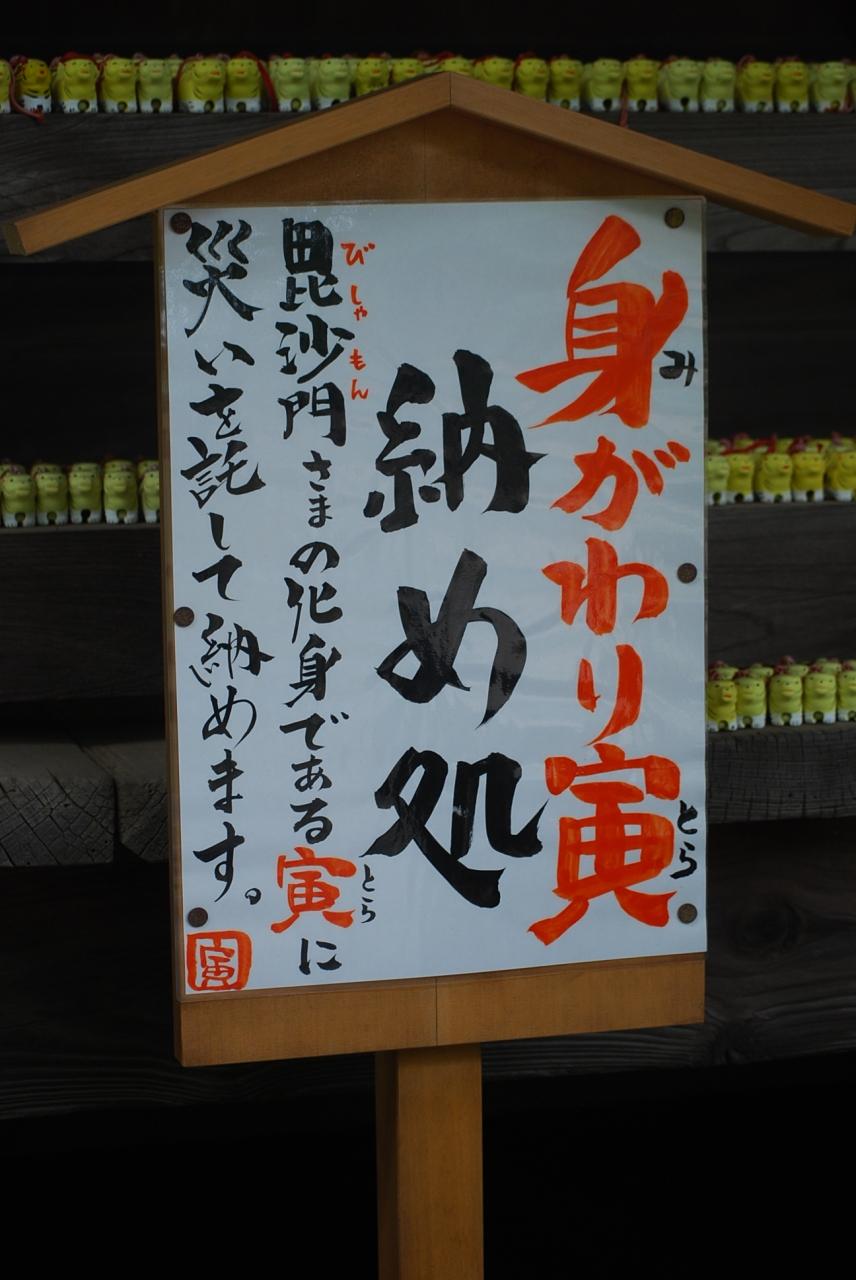 身がわり寅
み
とら
納め処
毘沙門さまの化身である寅に
びしゃもん
とら
災いを託して納めます。
寅